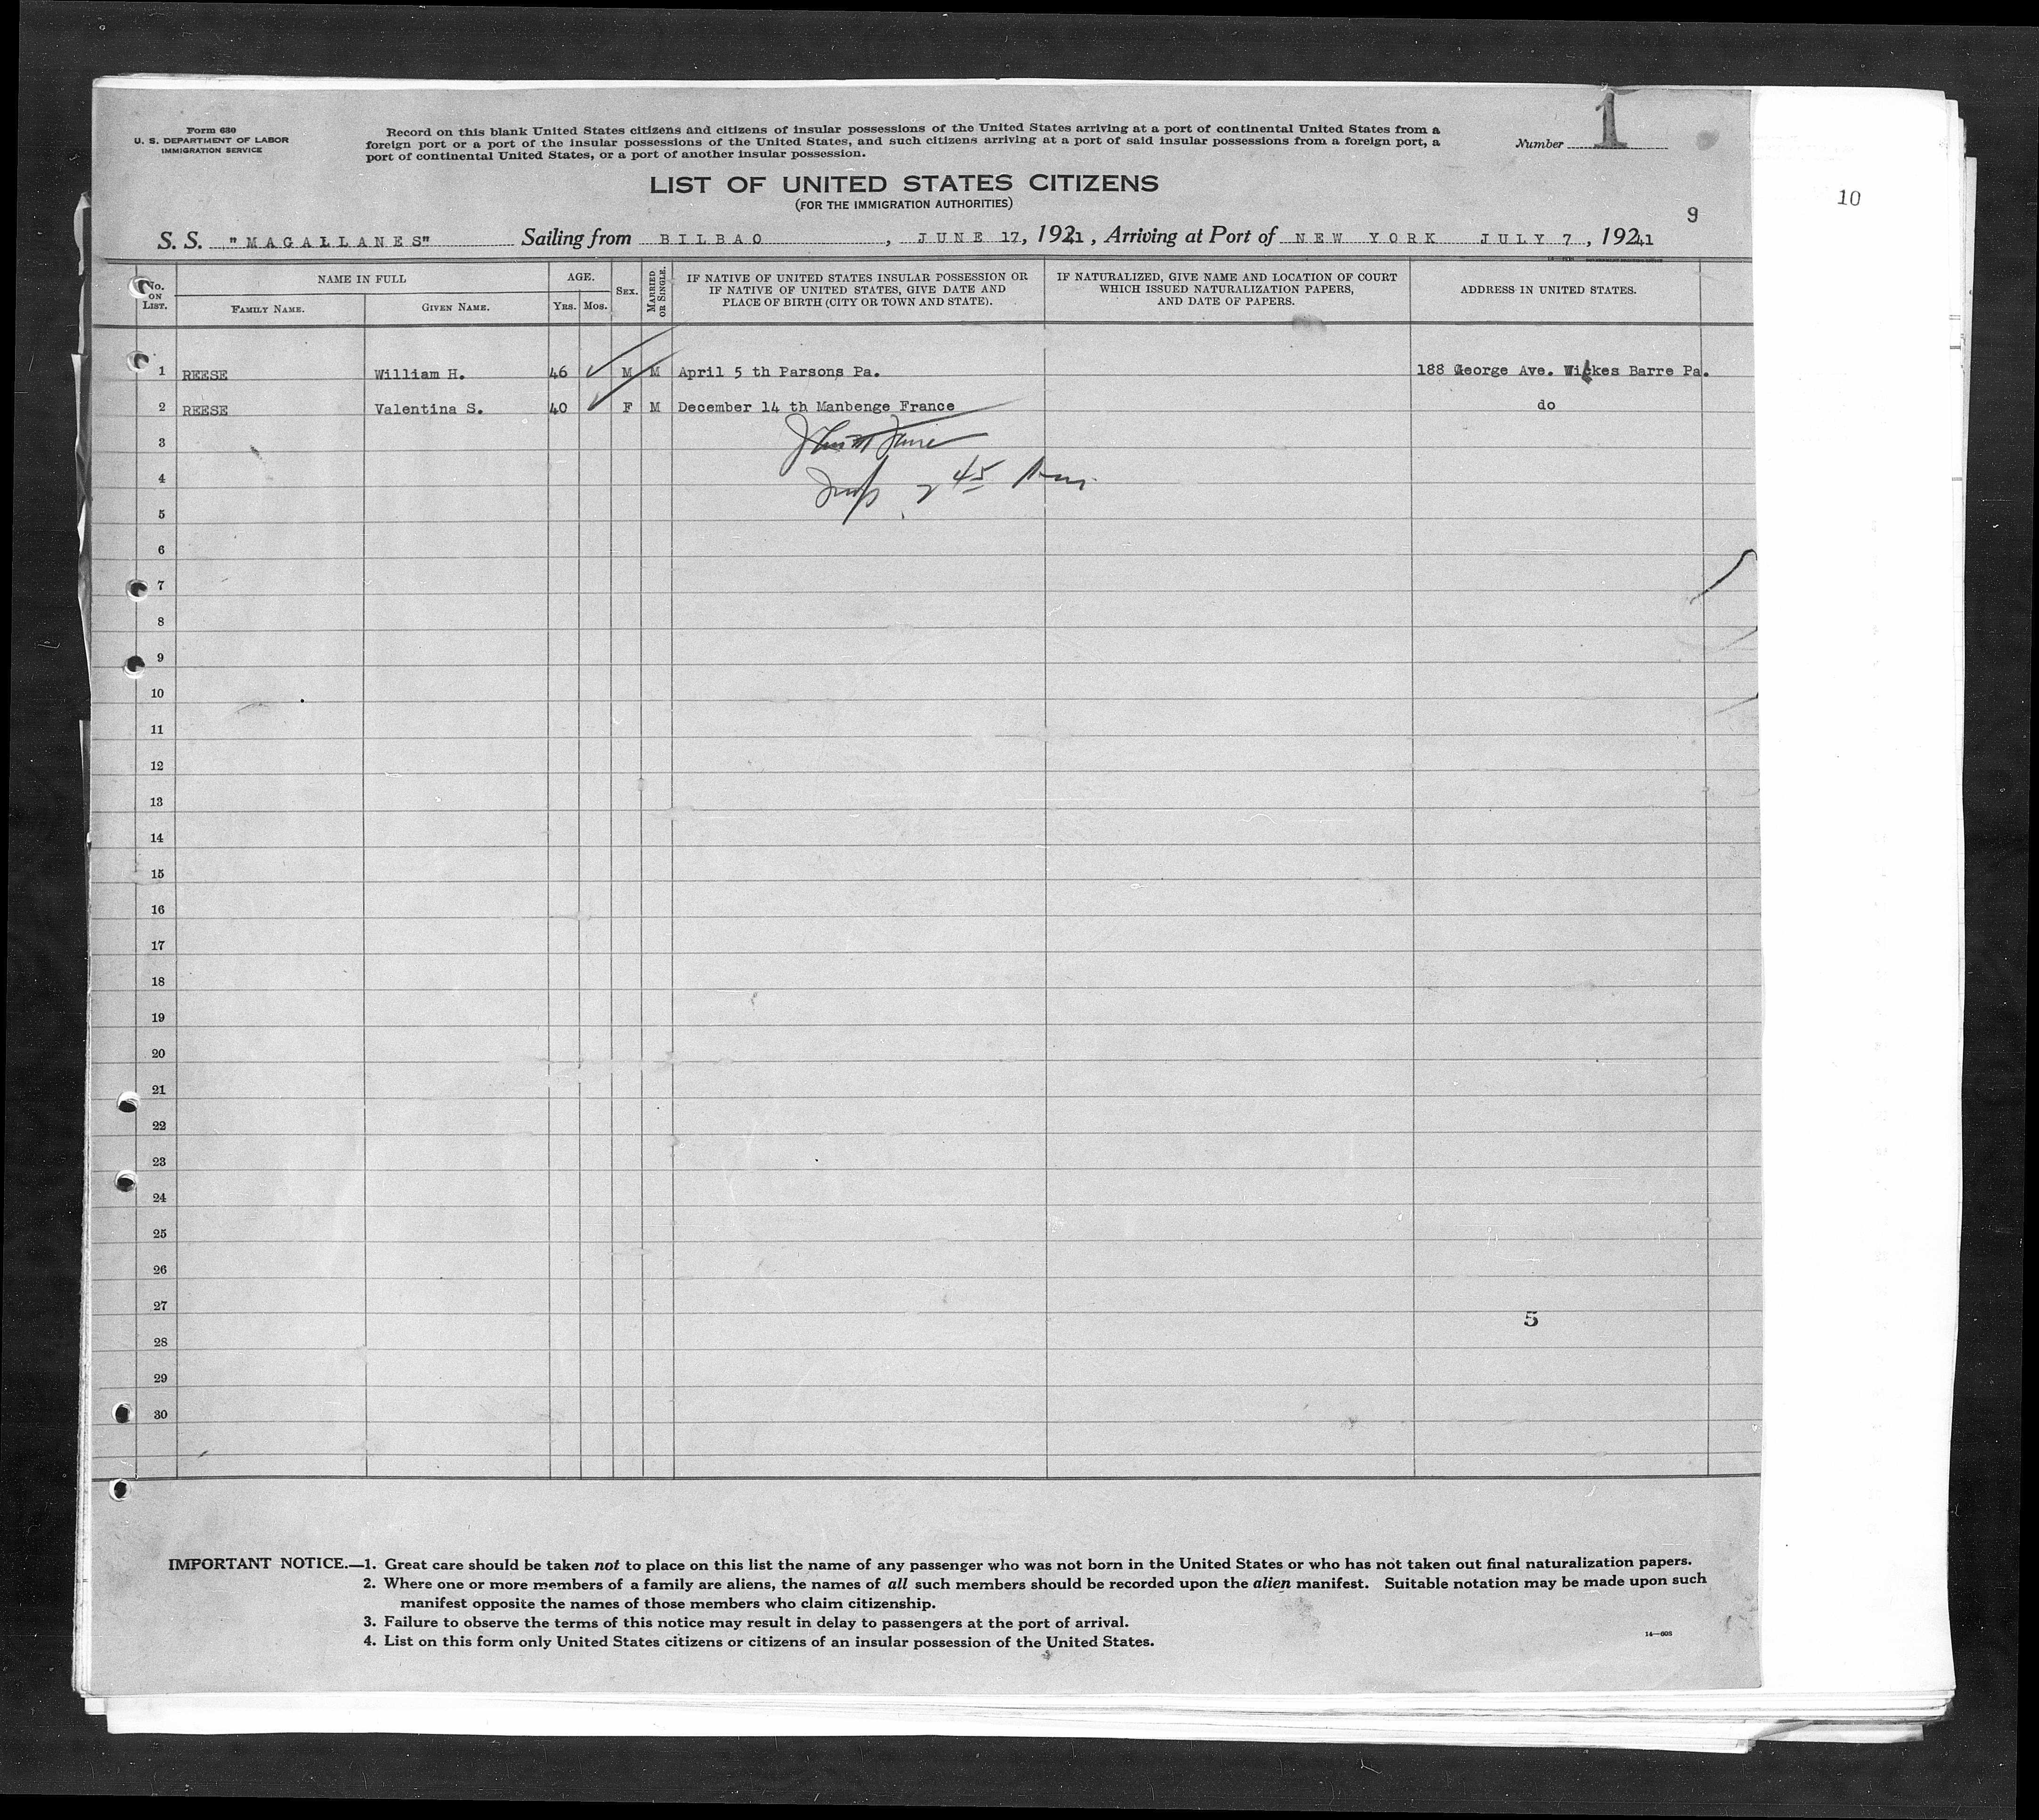 Form 630
U. S. DEPARTMENT OF LABOR
IMMIGRATION SERVICE
Record on this blank United States citizens and citizens of insular possessions of the United States arriving at a port of continental United States from a
foreign port or a port of the insular possessions of the United States, and such citizens arriving at a port of said insular possessions from a foreign port, a
port of continental United States, or a port of another insular possession.
Number 1
10
LIST OF UNITED STATES CITIZENS
(FOR THE IMMIGRATION AUTHORITIES)
9
S. S. "MAGALLANES" Sailing from BILBAO, JUNE 17, 1941, Arriving at Port of NEW YORK JULY 7, 1941
No. ON LIST. NAME IN FULL AGE. SEX. MARRIED OR SINGLE. IF NATIVE OF UNITED STATES INSULAR POSSESSION OR IF NATIVE OF UNITED STATES, GIVE DATE AND PLACE OF BIRTH (CITY OR TOWN AND STATE). IF NATURALIZED, GIVE NAME AND LOCATION OF COURT WHICH ISSUED NATURALIZATION PAPERS, AND DATE OF PAPERS. ADDRESS IN UNITED STATES.
FAMILY NAME. GIVEN NAME. Yrs. Mos.
1 REESE William H. 46 M M April 5 th Parsons Pa. 188 George Ave. Wilkes Barre Pa.
2 REESE Valentina S. 40 F M December 14 th Manbenge France do
3
4 2 45
5
6
7
8
9
10
11
12
13
14
15
16
17
18
19
20
21
22
23
24
25
26
27
5
28
29
30
IMPORTANT NOTICE.—1. Great care should be taken not to place on this list the name of any passenger who was not born in the United States or who has not taken out final naturalization papers.
2. Where one or more members of a family are aliens, the names of all such members should be recorded upon the alien manifest. Suitable notation may be made upon such
manifest opposite the names of those members who claim citizenship.
3. Failure to observe the terms of this notice may result in delay to passengers at the port of arrival.
4. List on this form only United States citizens or citizens of an insular possession of the United States.
14—608